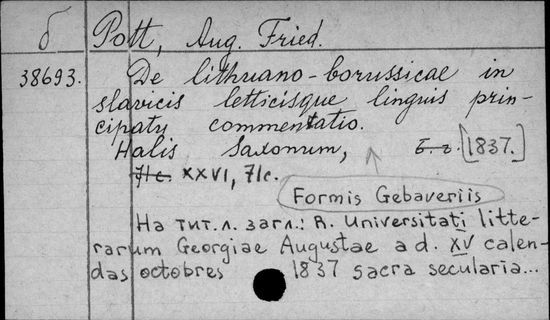 б Pott, Aug. Fried.
38693. De lithuano-borussicae in
slavicis letticisque linguis prin-
cipatu commentatio.
Halis Saxonum, б. г. [1837.]
71 с. XXVI, 71с.
Formis Gebaveriis
На тит. л. загл.: R. Universitati litte-
rarum Georgiae Augustae a d. XV calen-
das octobres 1837 sacra secularia...